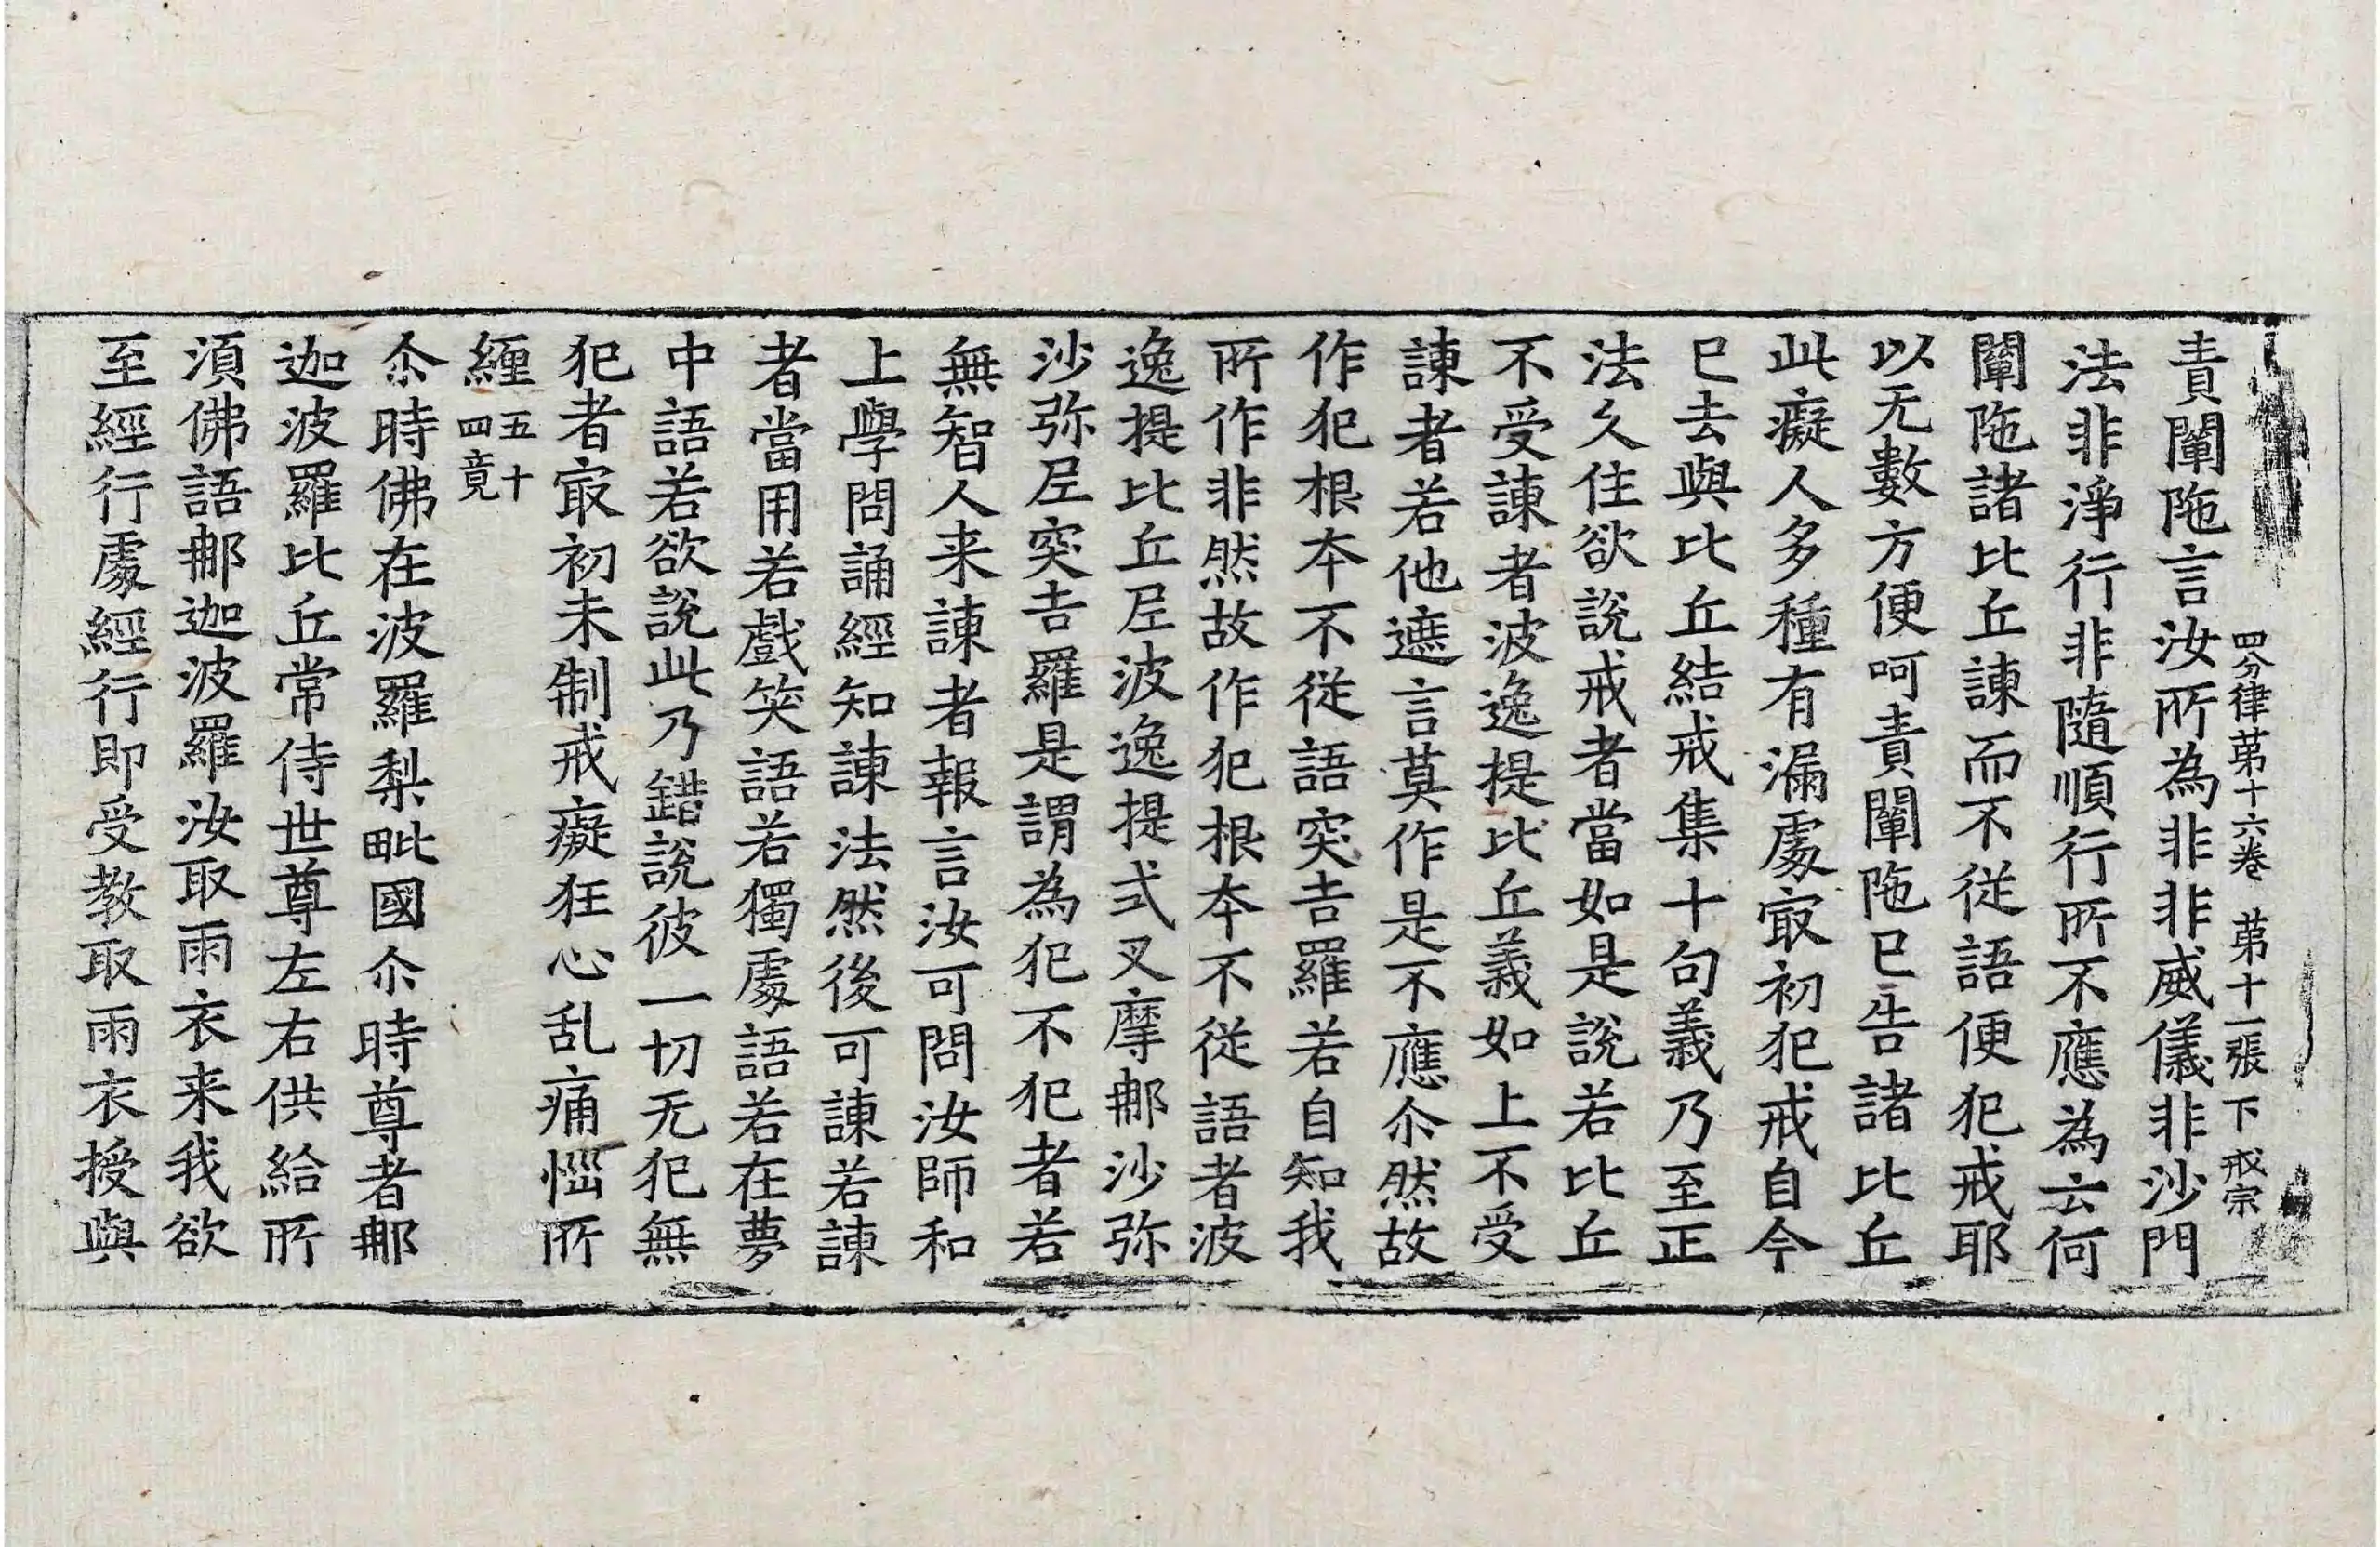 四分律苐十六卷 苐十一張 下 戒宗
責闡陁言汝所為非非威儀非沙門
法非淨行非隨順行所不應為云何
闡陁諸比丘諫而不従語便犯戒耶
以无數方便呵責闡陁已告諸比丘
此癡人多種有漏處㝡初犯戒自今
已去與比丘結戒集十句義乃至正
法久住欲說戒者當如是說若比丘
不受諫者波逸提比丘義如上不受
諫者若他遮言莫作是不應尒然故
作犯根本不従語突吉羅若自知我
所作非然故作犯根本不従語者波
逸提比丘尼波逸提式叉摩那沙弥
沙弥尼突吉羅是謂為犯不犯者若
無智人来諫者報言汝可問汝師和
上學問誦經知諫法然後可諫若諫
者當用若戲笑語若獨處語若在夢
中語若欲說此乃錯說彼一切无犯無
犯者㝡初未制戒癡狂心乱痛惱所
纏五十四竟
尒時佛在波羅梨毗國尒時尊者那
迦波羅比丘常侍世尊左右供給所
須佛語那迦波羅汝取雨衣来我欲
至經行處經行即受教取雨衣授與